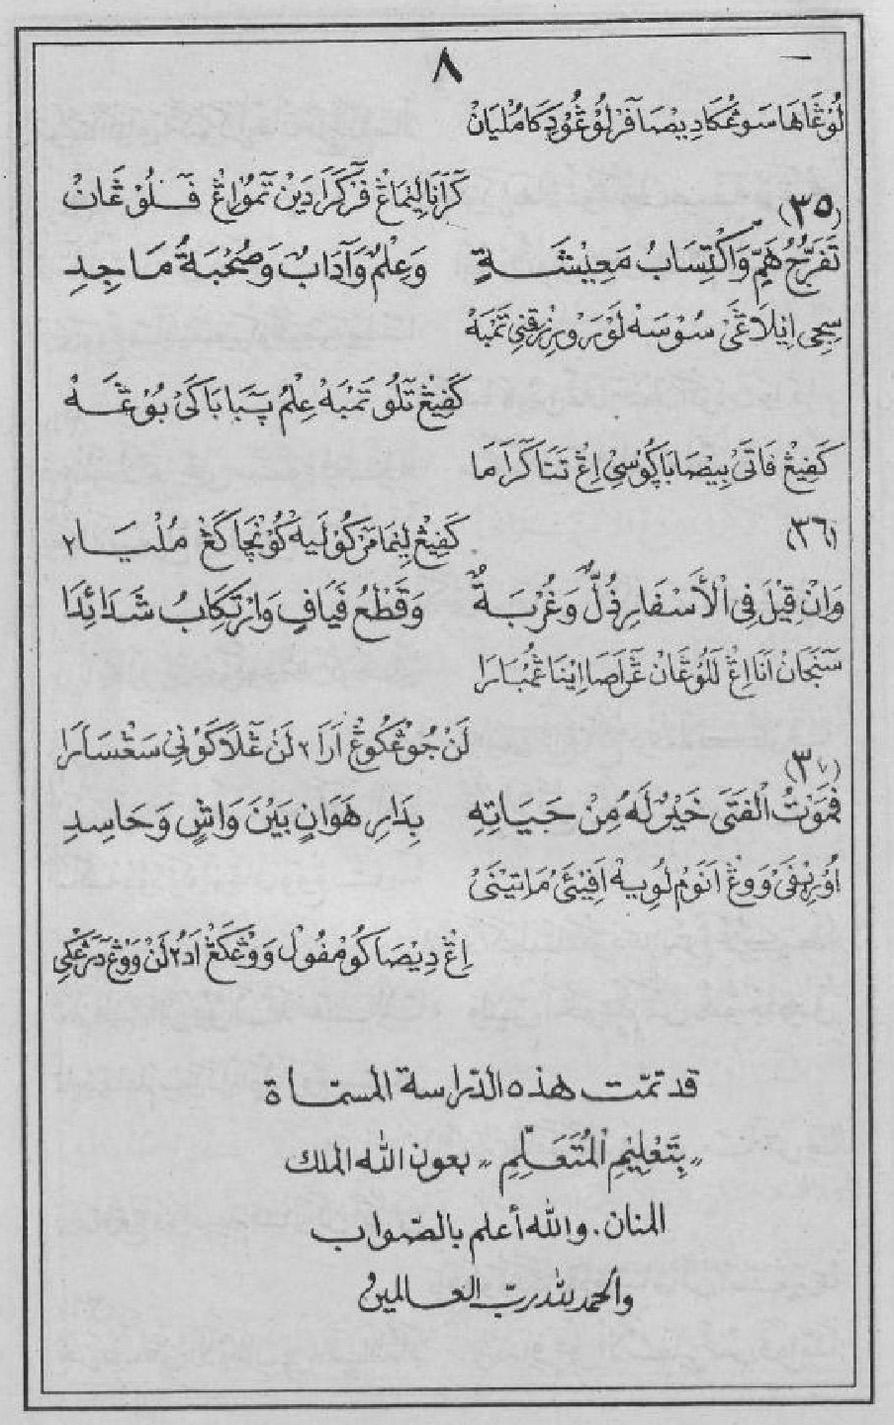 ٨
لُوْڠَاهَا سَوڠْكَا دِيْصَا ڤَرْلُوْ ڠُوْدِ كَامُلْيَانْ
كَرَانَا لِيْمَاڠْ ڤَرْكَرَا دَيْنْ تَمُوْ اِڠْ ڤَلُوْڠَانْ
(٣٥)
تَفَرُّجُ هَمٍّ وَاكْتِسَابُ مَعِيْشَةٍ وَعِلْمٌ وَآدَابٌ وَصُحْبَةُ مَاجِدِ
سِجِى اِيْلَاڠَىْ سُوْسَهْ لَوْرَوْ رِزْقِنِيْ تَمْبَهْ
كَڤِيْڠْ تَلُوْ تَمْبَهْ عِلْمُ ڽَبَابَاكَىْ بُوْڠَهْ
كَڤِيْڠْ ڤَاتَىْ بِيْصَا بَاكُوْسِيْ اِڠْ تَتَاكَرَامَا
كَڤِيْڠْ لِيْمَا ڤَرْكُوْلَيهْ كُوْنْچَا كَڠْ مُلْيَا٢
(٣٦)
وَاِنْ قِيْلَ فِى اْلأَسْفَارِ ذُلٌّ وَغُرْبَةٌ وَقَطْعُ فَيَافٍ وَارْتِكَابُ شَدَائِدَا
سَنَجَانْ اَنَا اِڠْ لَلُوْڠَانْ ڠْرَاصَا اِيْنَا ڠُمْبَارَا
لَنْ جُوڠْكُوڠْ اَرَا٢ لَنْ ڠَلَاكَوْنِيْ سَڠْسَارَا
(٣٧)
فَمَوْتُ الْفَتَى خَيْرٌ لَهُ مِنْ حَيَاتِهِ بِدَارِ هَوَانٍ بَيْنَ وَاشٍ وَحَاسِدِ
اُوْرِيْڤَىْ وَوڠْ اَنَوْمْ لُوِيهْ اَڤِيْئَىْ مَاتِيْنَىْ
اِڠْ دِيْصَا كُوْمْڤُولْ وَوڠْكَڠْ اَدُ٢ لَنْ وَوڠْ دَرَڠْكِى
قد تمّت هذه الدّراسة المسمّاة
"بِتَعْلِيْمِ الْمُتَعَلِّمِ" بعون الله الملك
المنان. والله أعلم بالصّواب
والحمد لله ربّ العالمين